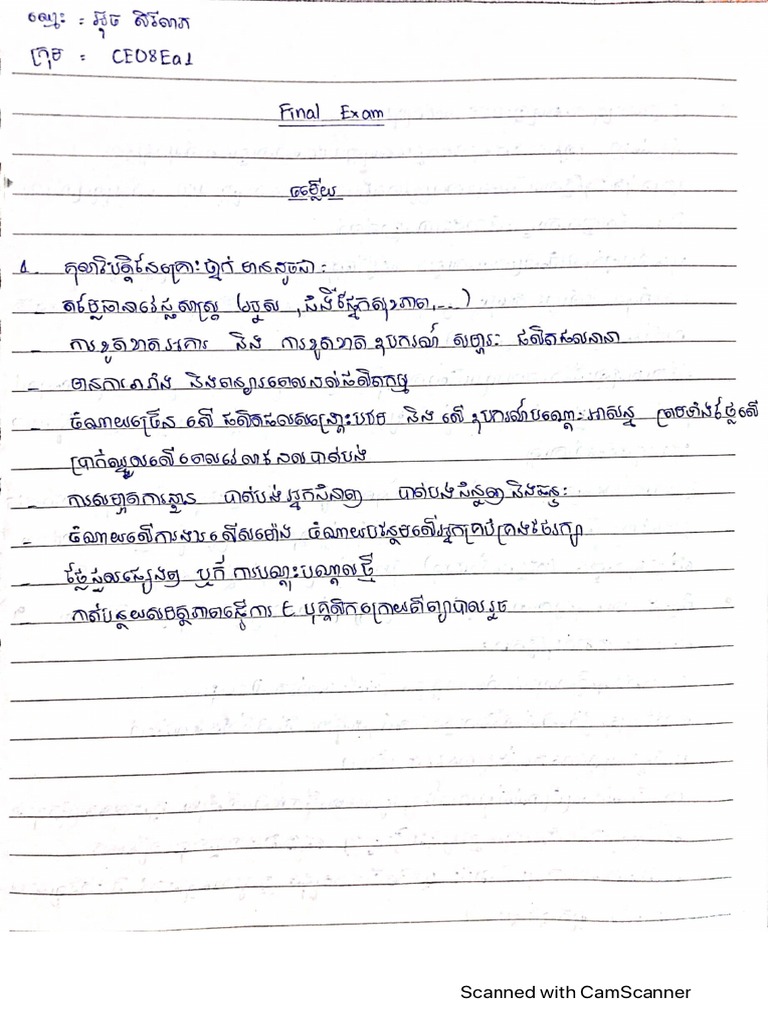 ឈ្មោះ : អ៊ុច សិរីលាភ
ក្រុម : CE08Ea1
Final Exam
ចម្លើយ
1. គុណវិបត្តិនៃគ្រោះថ្នាក់ មានដូចជា:
- តម្លៃធានាវេជ្ជសាស្ត្រ (របួស , ជំងឺផ្នែកសុខភាព,...)
- ការខូចខាតអគារ និង ការខូចខាតឧបករណ៍ សម្ភារៈ ផលិតផលនានា
- មានការរារាំង និងពន្យារពេលដល់ផលិតកម្ម
- ចំណាយច្រើន លើ ផលិតផលសង្គ្រោះបឋម និង លើ ឧបករណ៍បណ្តោះអាសន្ន ព្រមទាំងថ្លៃលើ
ប្រាក់ឈ្នួលលើពេលវេលាដែលបាត់បង់
- ការសញ្ជឹងគ្មាន បាត់បង់អ្នកជំនាញ បាត់បង់ជំនួញនិងឆន្ទៈ
- ចំណាយលើការងារលើសម៉ោង ចំណាយបន្ថែមលើអ្នកគ្រប់គ្រងថែរក្សា
- ថ្លៃជួលផ្សេងៗ ឬក៏ ការបណ្តុះបណ្តាលថ្មី
- កាត់បន្ថយសមត្ថភាពធ្វើការ នៃ បុគ្គលិកក្រោយពីព្យាបាលរួច
Scanned with CamScanner